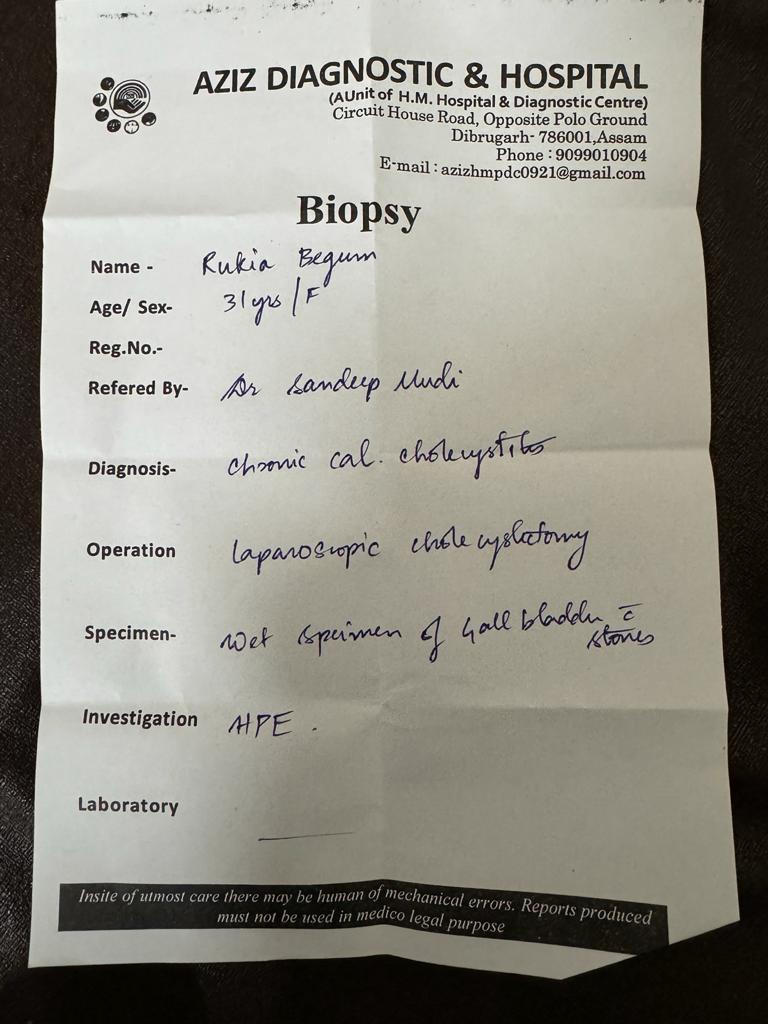 AZIZ DIAGNOSTIC & HOSPITAL
(A Unit of H.M. Hospital & Diagnostic Centre)
Circuit House Road, Opposite Polo Ground
Dibrugarh- 786001,Assam
Phone : 9099010904
E-mail : azizhmpdc0921@gmail.com
Biopsy
Name - Rukia Begum
Age/ Sex- 31 yrs / F
Reg.No.-
Refered By- Dr Sandeep Mudi
Diagnosis- Chronic cal. cholecystitis
Operation Laparoscopic cholecystectomy
Specimen- Wet specimen of gall bladder c̄
stones
Investigation HPE .
Laboratory
Insite of utmost care there may be human of mechanical errors. Reports produced
must not be used in medico legal purpose